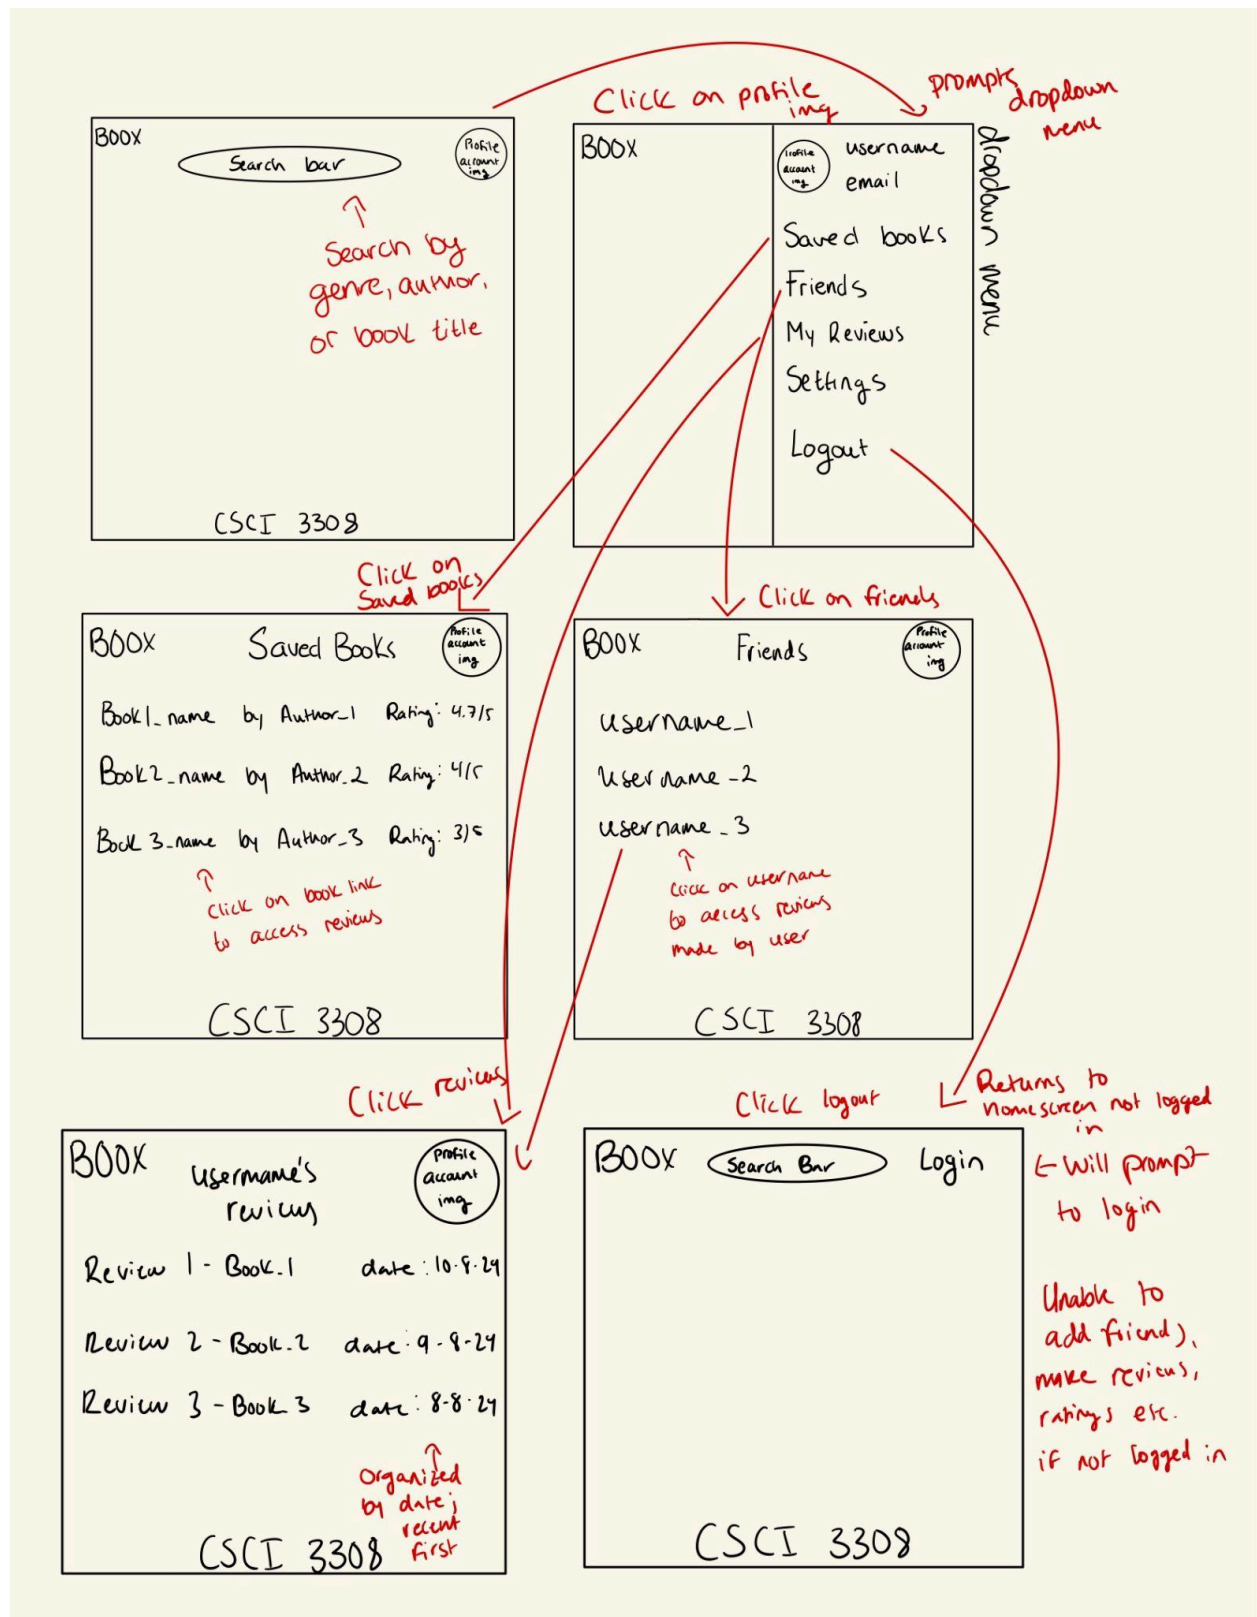 Click on profile
img
prompts
dropdown
menu
BOOX
Search bar
Profile
account
img
Search by
genre, author,
or book title
CSCI 3308
BOOX
Profile
account
img
username
email
Saved books
Friends
My Reviews
Settings
Logout
dropdown menu
Click on
Saved books
BOOX
Saved Books
Profile
account
img
Book1_name by Author_1 Rating: 4.7/5
Book2_name by Author_2 Rating: 4/5
Book 3_name by Author_3 Rating: 3/5
Click on book link
to access reviews
CSCI 3308
Click on friends
BOOX
Friends
Profile
account
img
username_1
username_2
username_3
Click on username
to access reviews
made by user
CSCI 3308
Click reviews
BOOX
Username's
reviews
Profile
account
img
Review 1 - Book_1 date: 10-8-24
Review 2 - Book_2 date: 9-8-24
Review 3 - Book 3 date: 8-8-24
Organized
by date;
recent
first
CSCI 3308
Click logout
Returns to
homescreen not logged
in
BOOX
Search Bar
Login
Will prompt
to login
Unable to
add friends,
make reviews,
ratings etc.
if not logged in
CSCI 3308